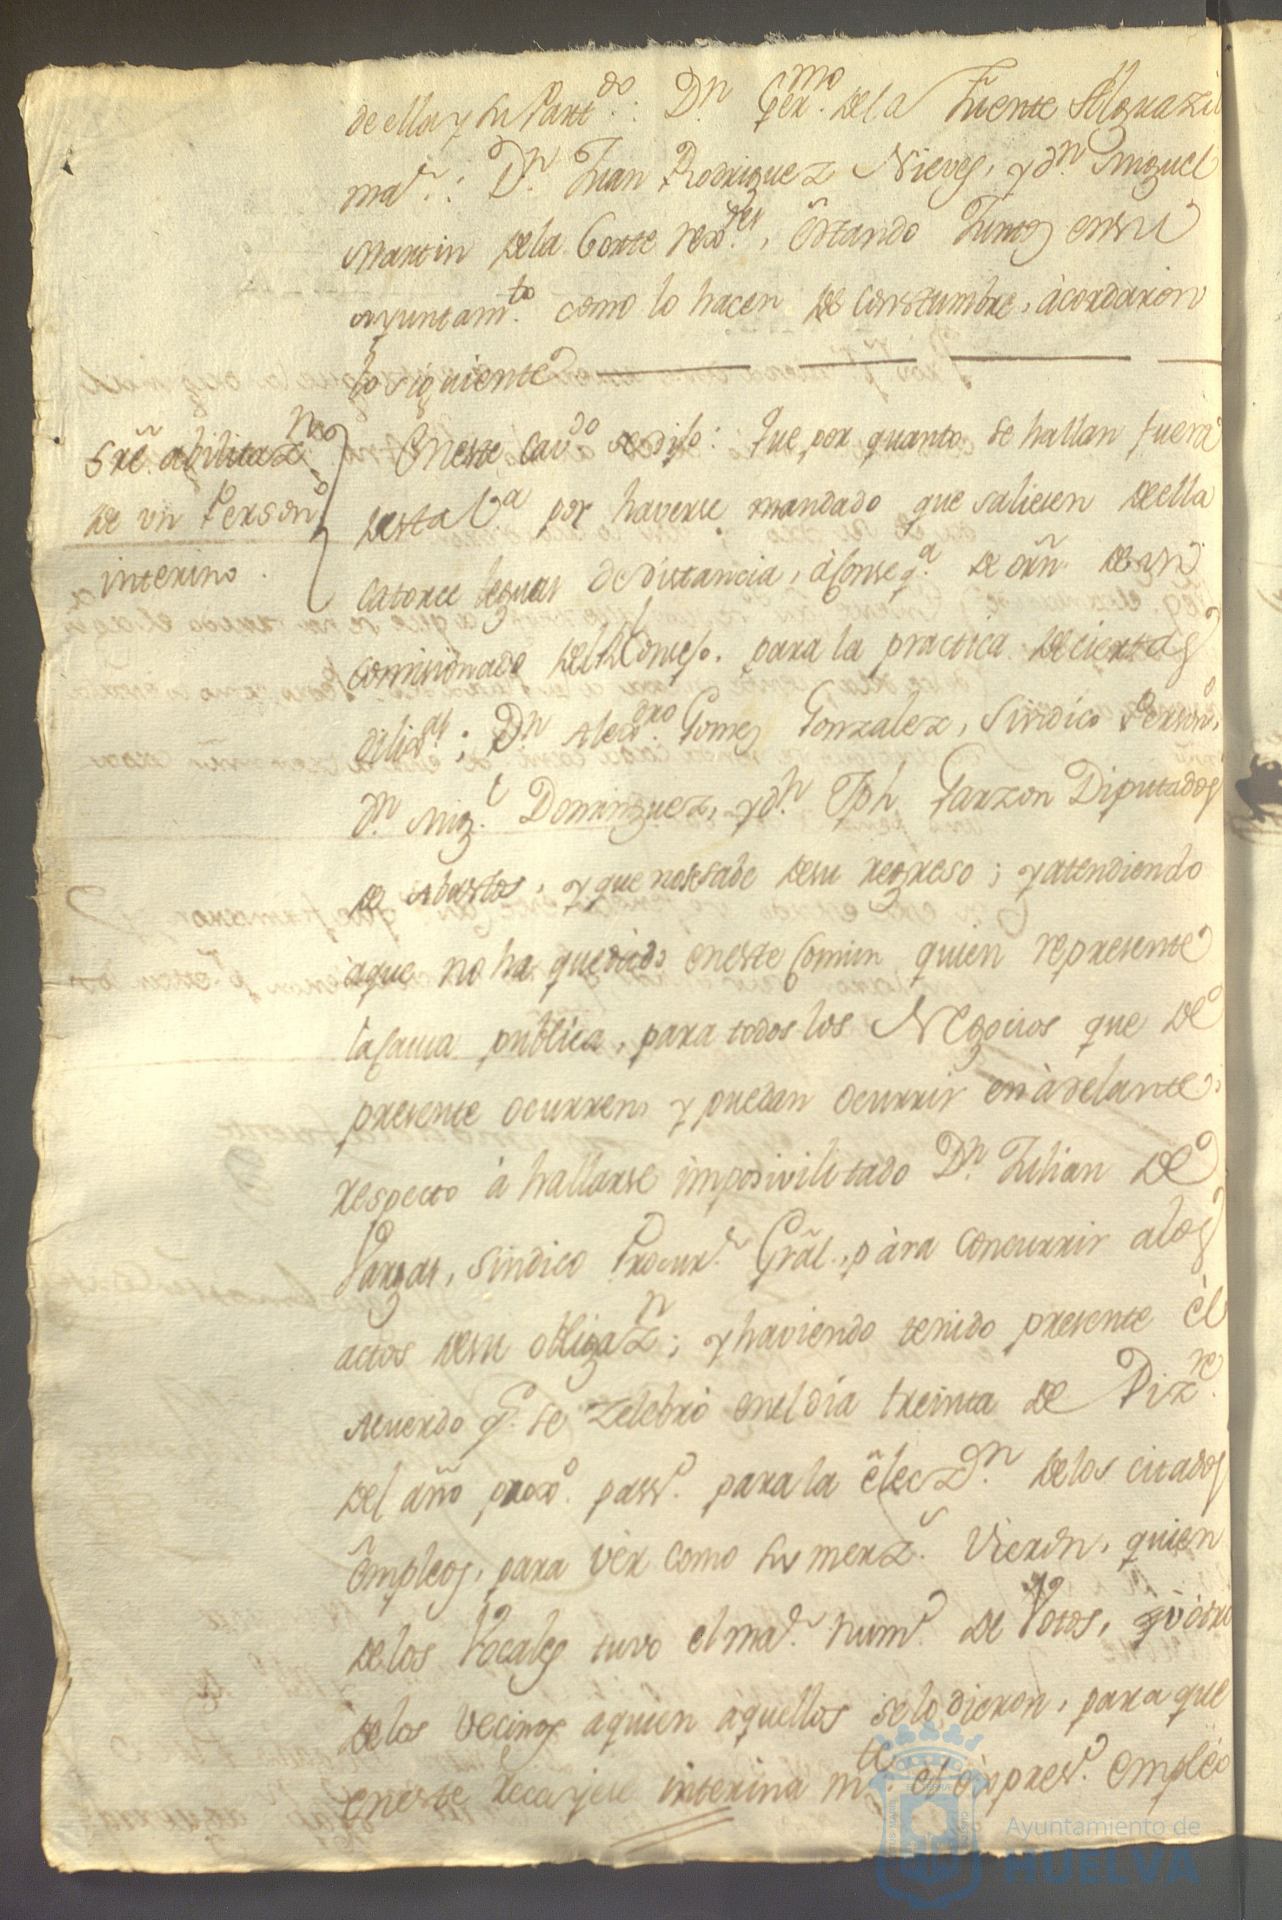 de ella y su Part.do: Dn. Ger.mo de la Fuente Alguazil
mar.: Dn. Juan Rodriguez Nieves, y dn. Miguel
Martin de la Corte rexd.res, Estando Juntos en su
ayuntam.to como lo hacen de constumbre, acordaron
lo siguiente
Sre. abilitaz.n
de un Person.o
interino.
En este Cav.do se dijo: Que por quanto se hallan fuera
desta V.a por haverse mandado que saliesen de ella
catorce leguas de distancia, à conseq.a de orñ. de un
comisionado del Rl. Consejo, para la practica de ciertas
dilig.s; Dn. Alexd.ro Gomez Gonzalez, Sindico Person.o,
dn. Mig.l Dominguez, y dn. Jph. Garzon Diputados
de Abastos, y que no se sabe de su regreso; y atendiendo
aque no ha quedado en este Comun quien represente
la causa publica, para todos los Negocios que de
presente ocurren, y puedan ocurrir en àdelante:
respecto à hallarse imposivilitado Dn. Julian de
Vargas, Sindico Procur.r Grãl., para concurrir alos
actos desu obligaz.n; y haviendo tenido presente èl
Acuerdo q.e se zelebró enel dia treinta de Diz.re
del año proxo. pass.o para la èlecz.on delos citados
Empleos, para vér como sus merz.s vieron, quien
delos Vocales tuvo el mar. num.o de Votos, yà otro
delos Vecinos aquien aquellos selo dieron, para que
en este recayese interina m.te el èxpres.o Empleo
Ayuntamiento de
HUELVA